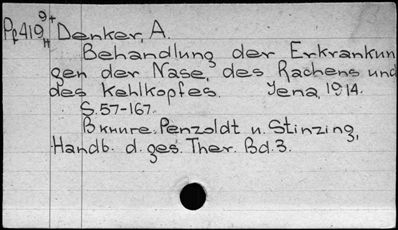 Pf419 9+ Denker, A.
H
Behandlung der Erkrankun
gen der Nase, des Rachens und
des Kehlkopfes. Jena, 1914.
S. 57-167.
В книге: Penzoldt u. Stinzing,
Handb. d. ges. Ther. Bd. 3.